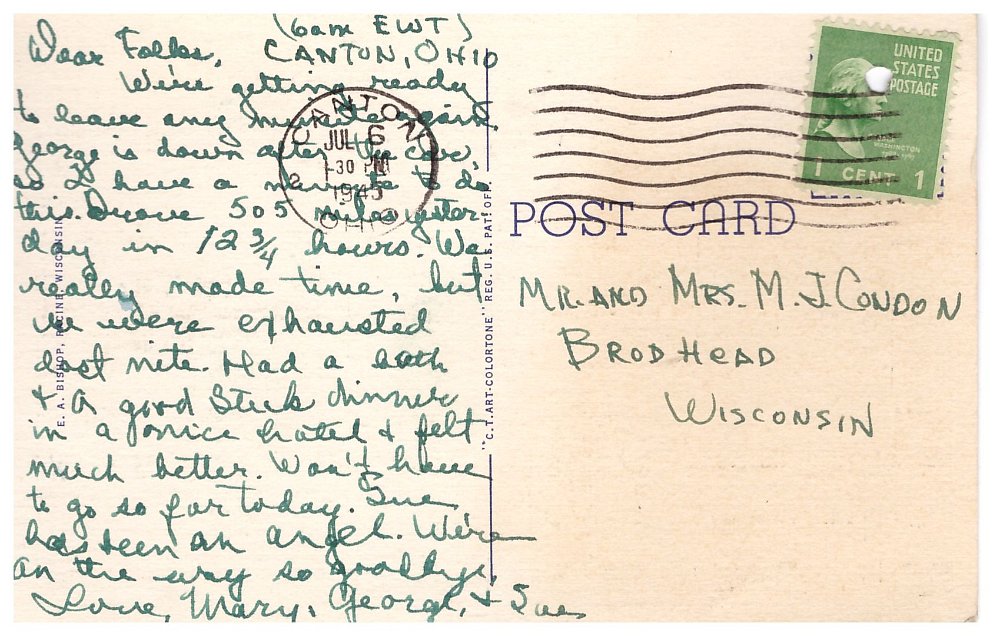 (6am EWT)
Dear Folks, CANTON, OHIO
We're getting ready
to leave any minute again.
George is down after the car,
so I have a minute to do
this. Drove 505 miles yester-
day in 12 3/4 hours. We
really made time, but
we were exhausted
last nite. Had a bath
& a good steak dinner
in a nice hotel & felt
much better. Won't have
to go so far today. Sue
has been an angel. We're
on the way so goodbye.
Love, Mary, George, & Sue
E. A. BISHOP, RACINE, WISCONSIN
"C.T. ART-COLORTONE" REG. U.S. PAT. OFF.
CANTON
JUL 6
1-30 PM
1945
OHIO
2
UNITED
STATES
POSTAGE
WASHINGTON
1 CENT 1
POST CARD
MR. AND MRS. M. J. CONDON
BRODHEAD
WISCONSIN